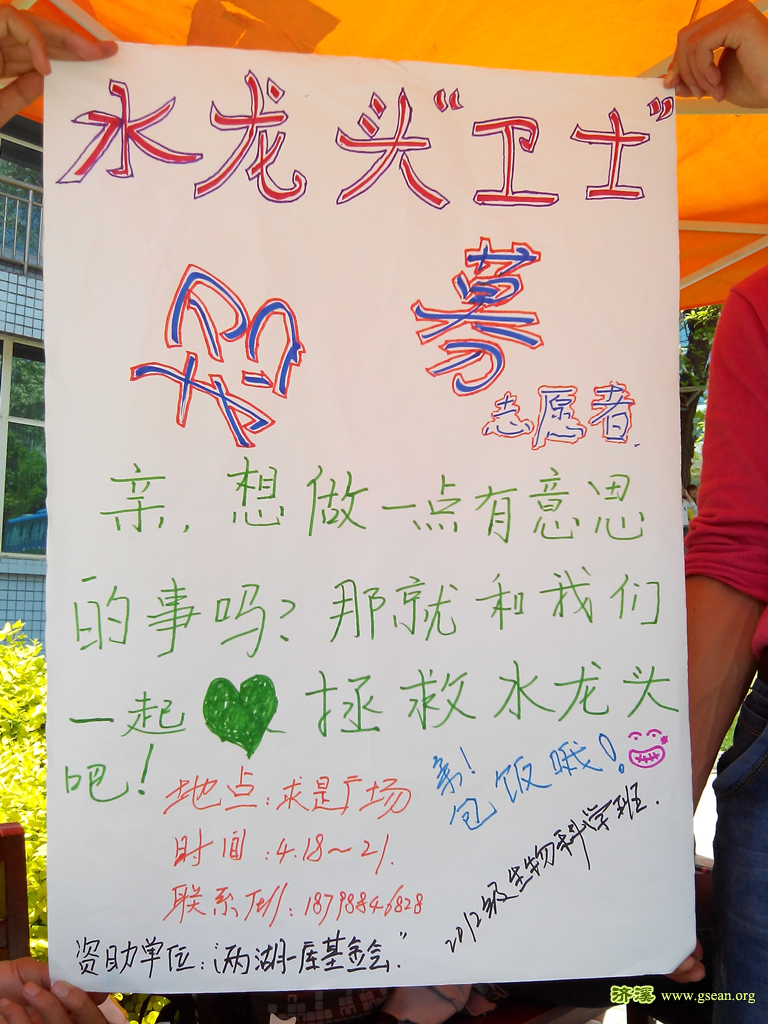 水龙头“卫士”
招募
志愿者.
亲,想做一点有意思
的事吗?那就和我们
一起 拯救水龙头
吧!
亲!
包饭哦!
地点:求是广场
时间:4.18~21.
联系Tel:18798846828
2012级生物科学班.
资助单位:“两湖一库基金会”
济溪 www.gsean.org